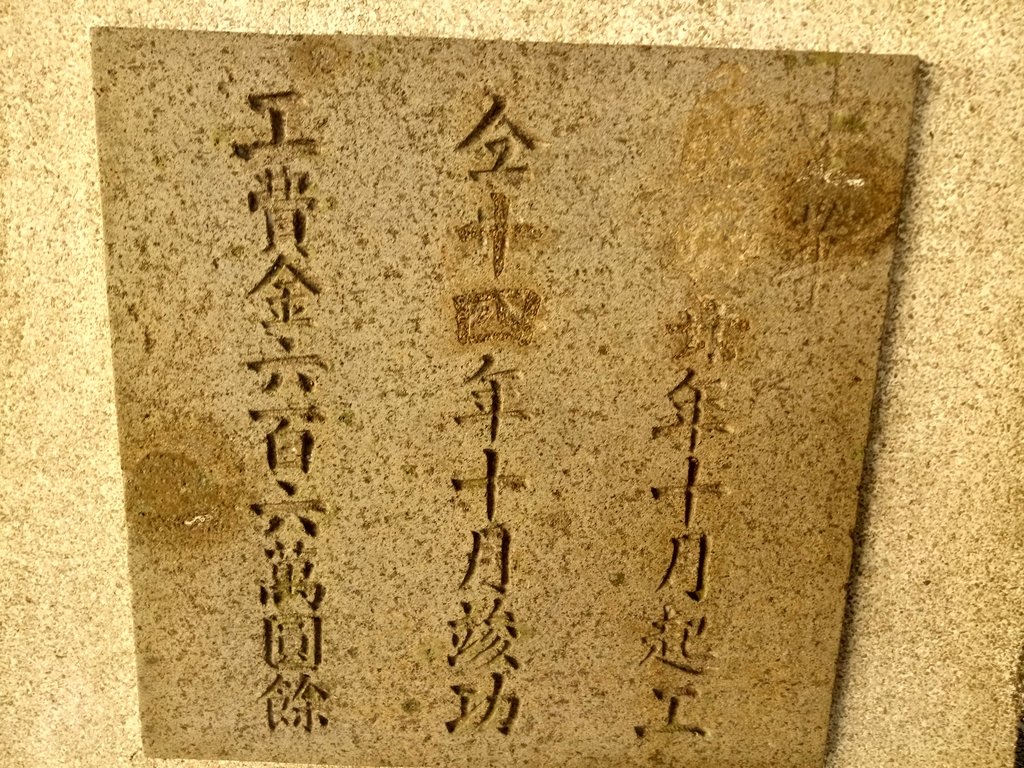 年十月起工
仝十四年十月竣功
工費金六百六萬圓餘